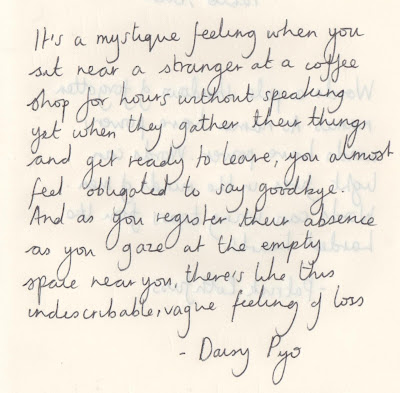 It's a mystique feeling when you
sit near a stranger at a coffee
shop for hours without speaking
yet when they gather their things
and get ready to leave, you almost
feel obligated to say, goodbye.
And as you register their absence
as you gaze at the empty
space near you, there's like this
indescribable, vague feeling of loss
- Daisy Pyo